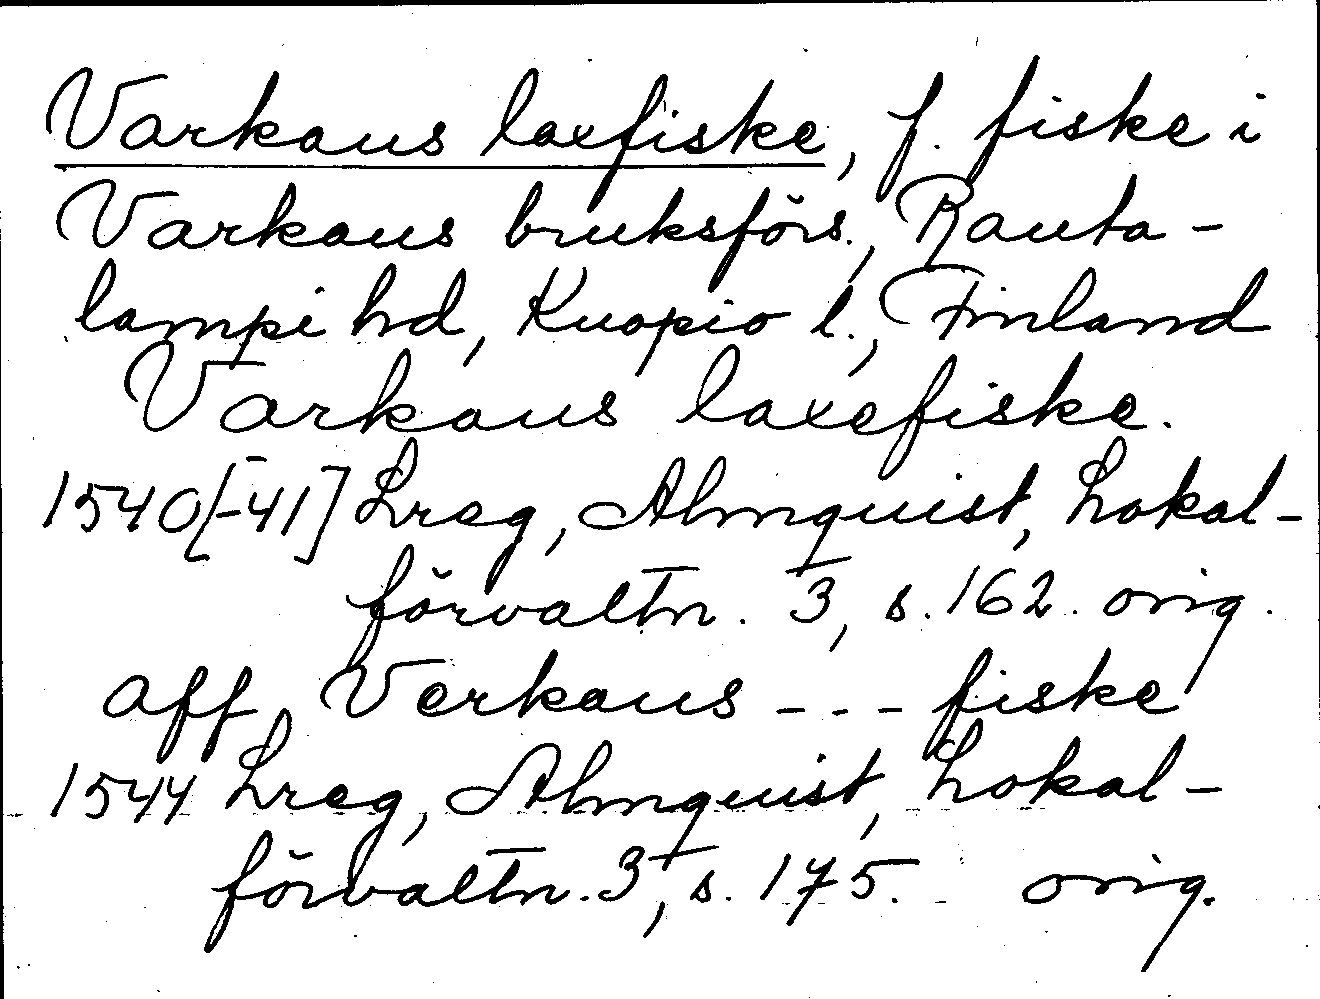 Varkaus laxfiske, f. fiske i
Varkaus bruksförs., Rauta-
lampi hd, Kuopio l., Finland
Varkaus laxefiske.
1540[-41] Lreg, Almquist, Lokal-
förvaltn. 3, s. 162. orig.
aff Verkaus --- fiske
1544 Lreg, Almquist, Lokal-
förvaltn. 3, s. 175. orig.